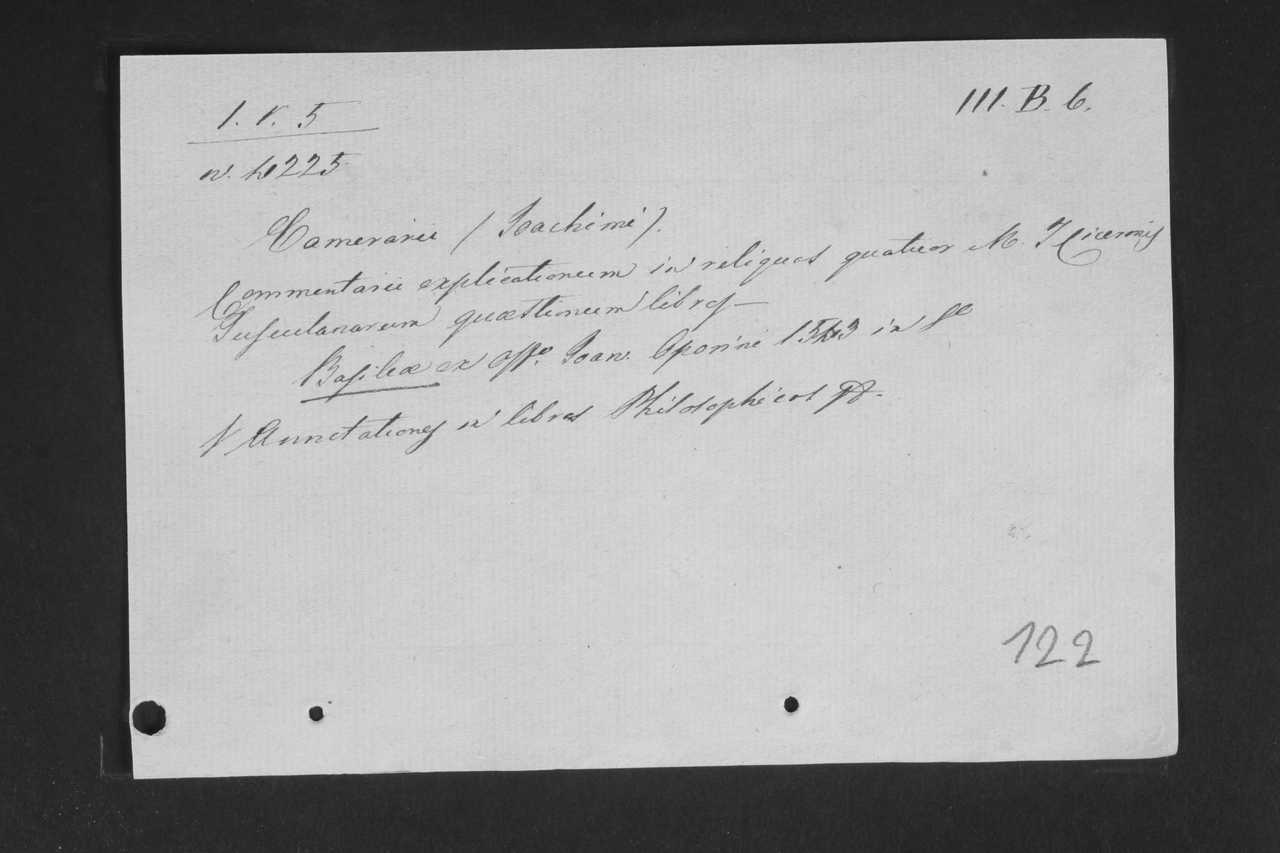 1. V. 5
III. B. 6.
n. 4225
Camerarii (Joachimi).
Commentarii explicationum in reliquos quatuor M. T. Ciceronis
Tusculanarum quæstionum libros—
Basileæ ex offo. Joan. Oporini 1543 in
V Annotationes in libros Philosophicos
122